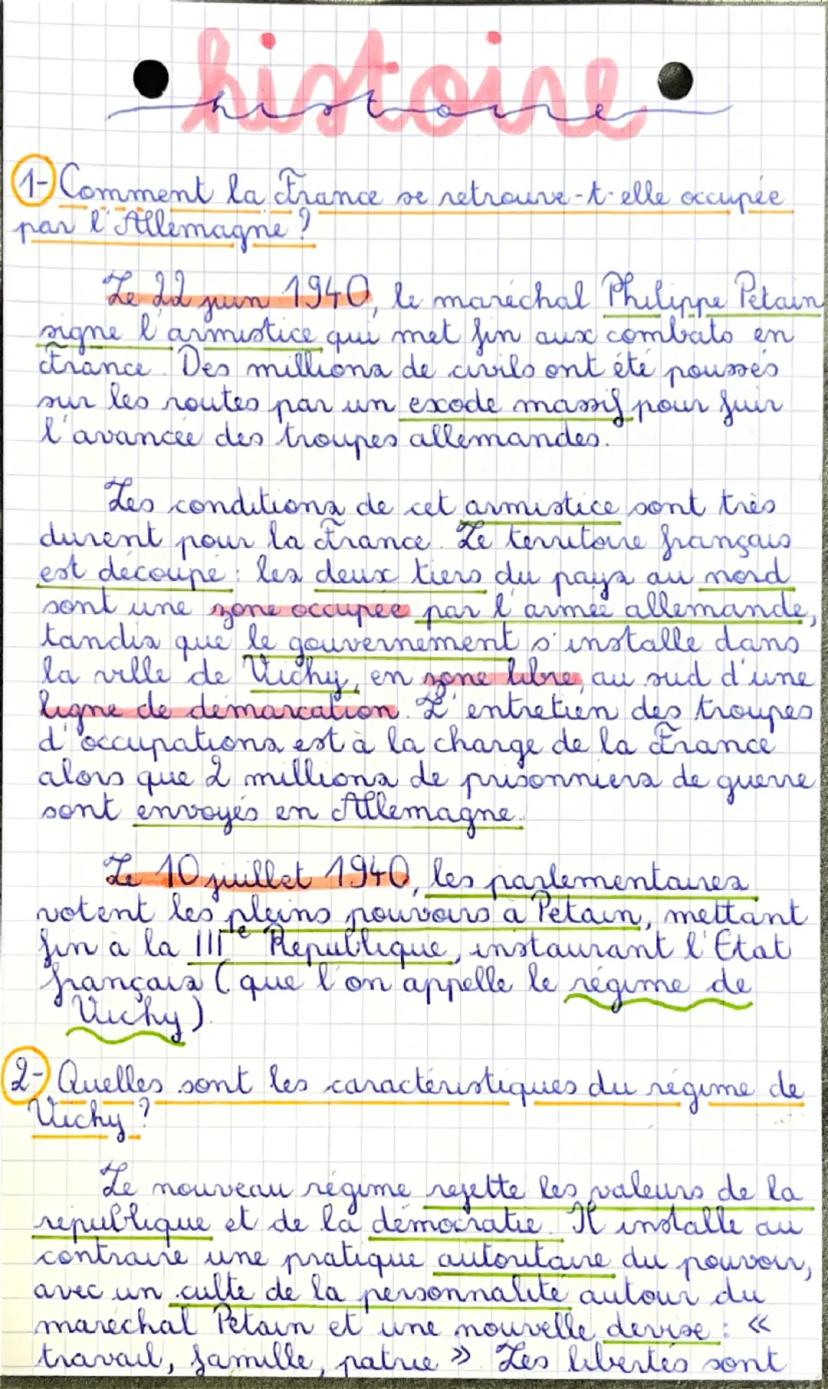 histoire
histoire
1- Comment la France se retrouve-t-elle occupée
par l'Allemagne ?
Le 22 juin 1940, le maréchal Philippe Petain
signe l'armistice qui met fin aux combats en
France. Des millions de civils ont été poussés
sur les routes par un exode massif pour fuir
l'avancée des troupes allemandes.
Les conditions de cet armistice sont très
durent pour la France. Le territoire français
est découpé : les deux tiers du pays au nord
sont une zone occupée par l'armée allemande,
tandis que le gouvernement s'installe dans
la ville de Vichy, en zone libre, au sud d'une
ligne de démarcation. L'entretien des troupes
d'occupations est à la charge de la France
alors que 2 millions de prisonniers de guerre
sont envoyés en Allemagne.
Le 10 juillet 1940, les parlementaires
votent les pleins pouvoirs à Petain, mettant
fin à la IIIe République, instaurant l'Etat
français (que l'on appelle le régime de
Vichy).
2- Quelles sont les caractéristiques du régime de
Vichy ?
Le nouveau régime rejette les valeurs de la
république et de la démocratie. Il installe au
contraire une pratique autoritaire du pouvoir,
avec un culte de la personnalité autour du
maréchal Petain et une nouvelle devise : «
travail, famille, patrie ». Les libertés sont